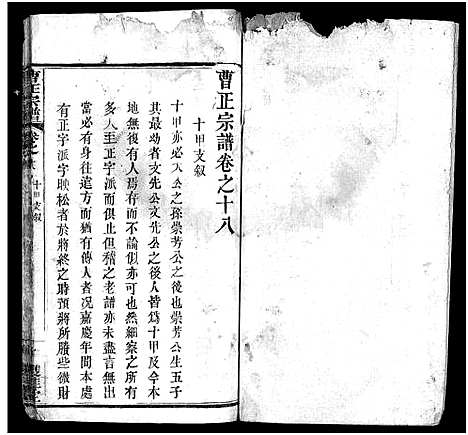 曹正宗譜卷之十八
十甲支叙
十甲亦必大公之孫崇芳公之後也崇芳公生五子
其最幼者文先公文先公之後人皆爲十甲及今木
地無後有人焉存而不論似亦可也然細察之所
多人至正字派而俱止但稽之老譜亦未盡言無出
當必有身往遠方而猶有傳人者况嘉慶年間本處
有正字派字映松者於將終之時預將所廢些微財
曹正宗譜
卷之
十甲支叙